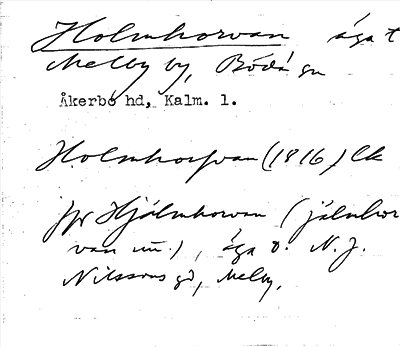 Holmhorvan äga t
Melby by, Böda sn
Åkerbo hd, Kalm. l.
Holmhorfvan (1816) lk
Hjälmhorvan (jälmhor
van), äga t. N. J.
Nilssons gd, Melby.